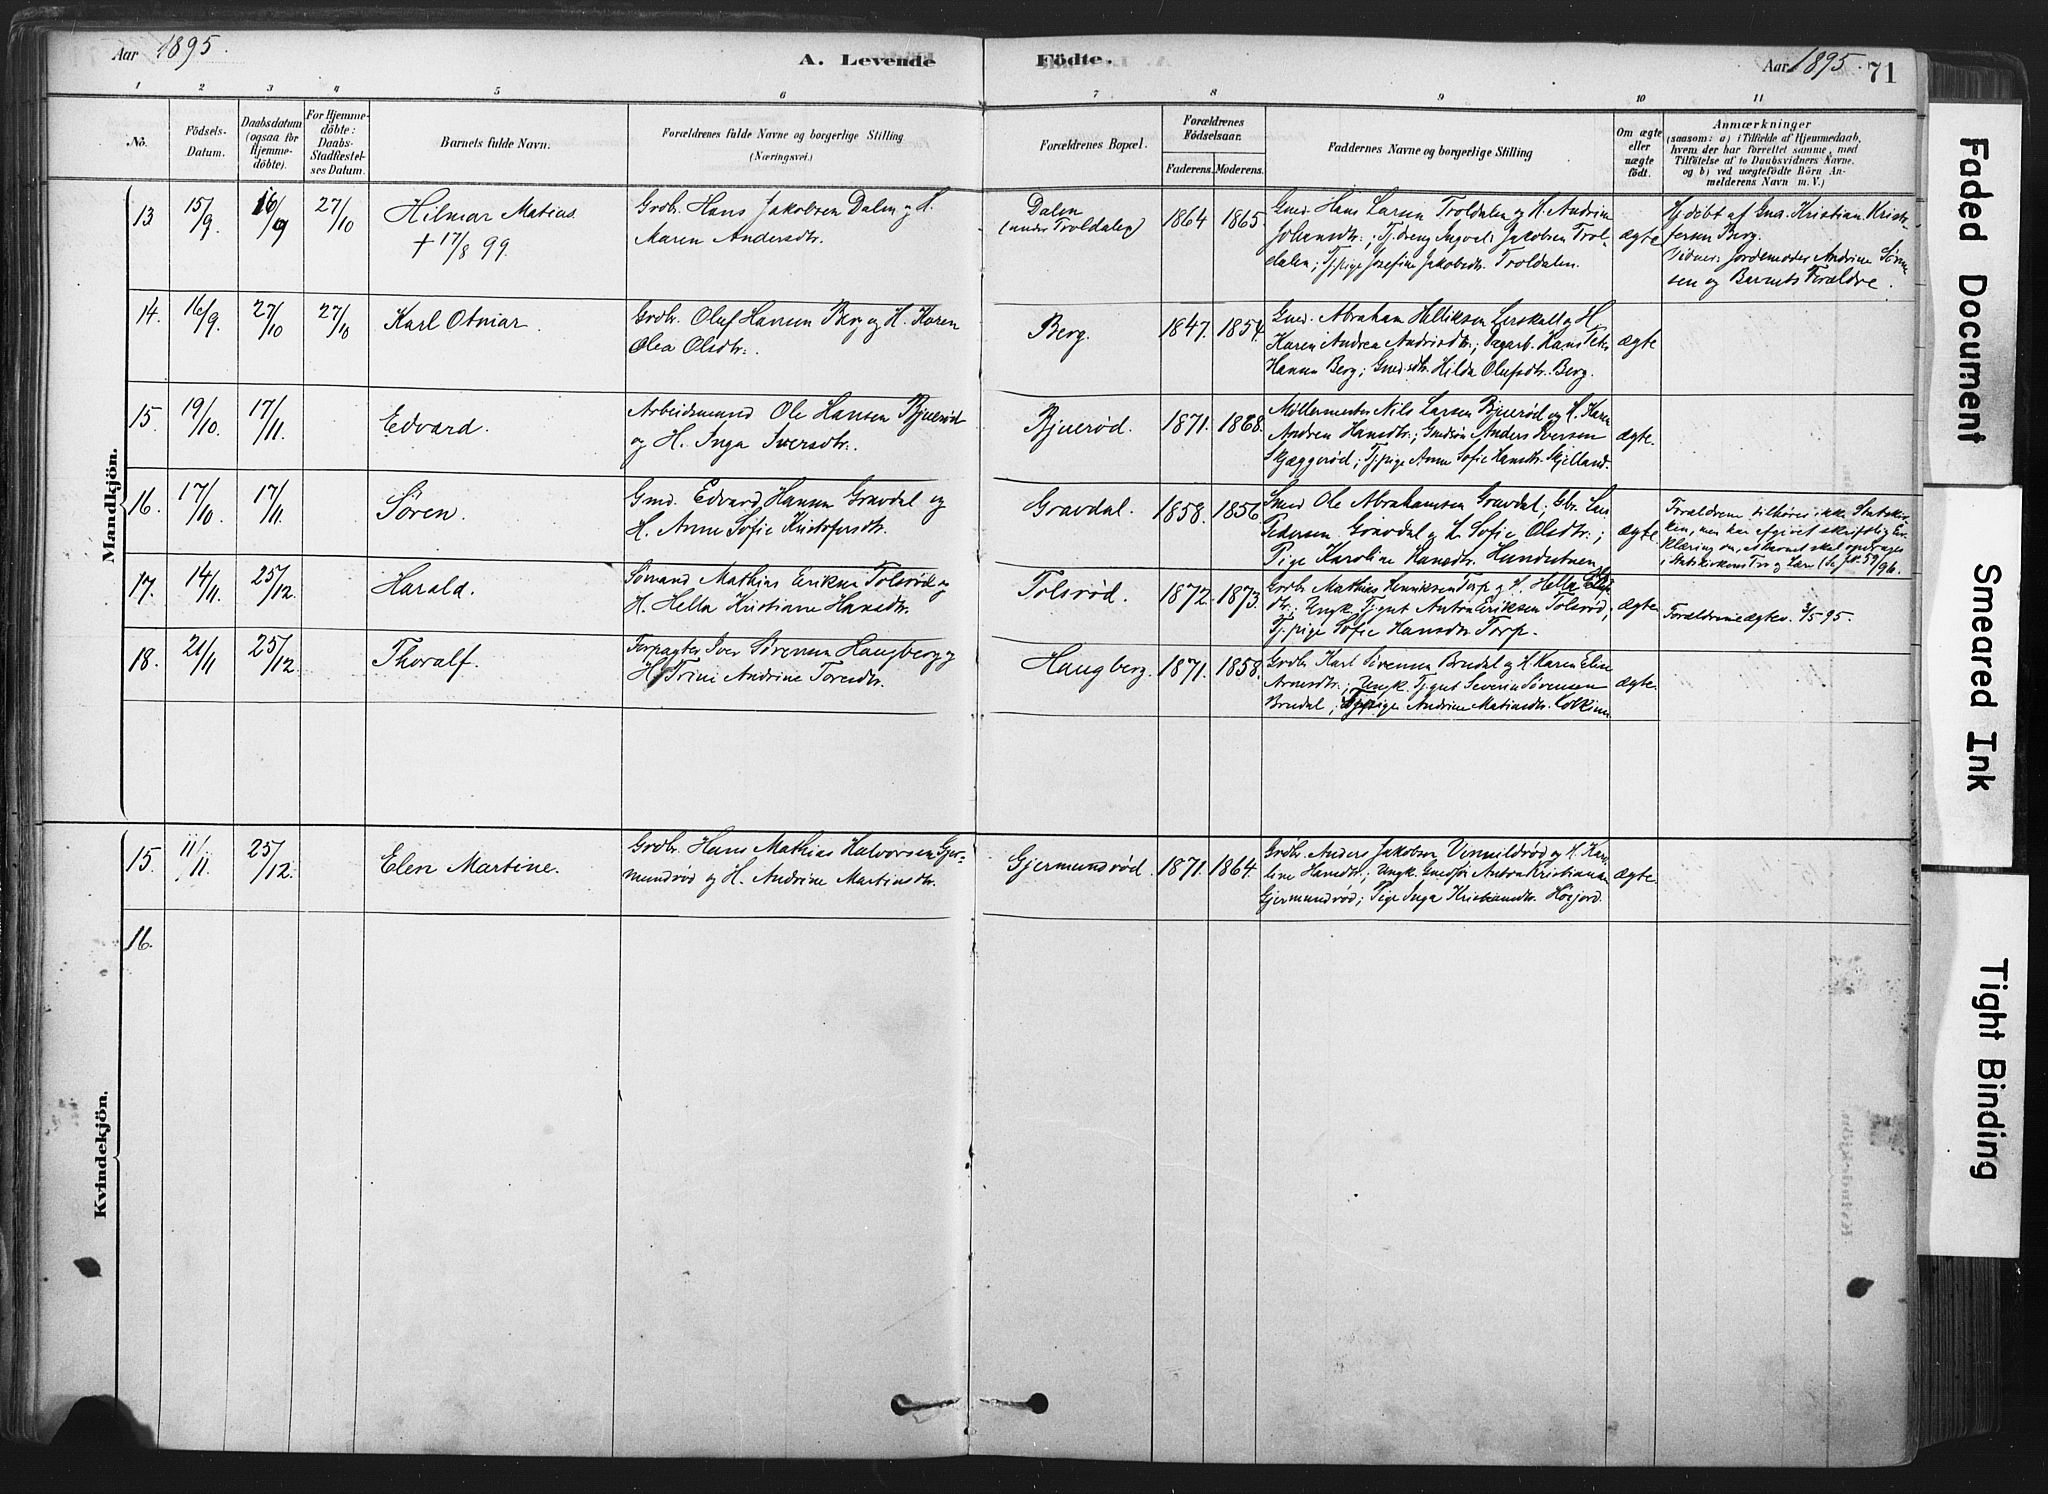 Aar 1895.
A. Levende
Födte.
Aar 1895.
71
1
2
3
4
5
6
7
8
9
10
11
No.
Födsels-
Datum.
Daabsdatum
(ogsaa for
Hjemme-
döbte).
For Hjemme-
döbte:
Daabs-
Stadfæstel-
ses Datum.
Barnets fulde Navn.
Forældrenes fulde Navne og borgerlige Stilling
(Næringsvei.)
Forældrenes Bopæl.
Forældrenes
Födselsaar.
Faderens.
Moderens.
Faddernes Navne og borgerlige Stilling
Om ægte
eller
uægte
födt.
Anmærkninger
(saasom: a) i Tilfælde af Hjemmedaab,
hvem der har forrettet samme, med
Tilföielse af to Daabsvidners Navne.
og b) ved uægtefödte Börn An-
melderens Navn m. V.)
Mandkjön.
13
15/9.
16/9
27/10
Hilmar Matias
+ 17/8 99.
Grdbr. Hans Jakobsen Dalen og H.
Maren Andersdtr.
Dalen
(under Troldalen)
1864
1865.
Gmd. Hans Larsen Troldalen og H. Andrine
Johansdtr.; Tj.dreng Ingvall Jakobsen Trol-
dalen; Tj.pige Josefine Jakobsdtr. Troldalen.
ægte
Hj.døbt af Gmd. Kristian Krist-
fersen Berg.
Vidner: Jordemoder Andrine Søren
sen og Barnets Forældre.
14.
16/9.
27/10
27/10
Karl Otmar.
Grdbr. Oluf Hansen Berg og H. Karen
Olea Olsdtr.
Berg.
1847.
1854.
Gmd. Abraham Helliksen Lerskall og H.
Karen Andrea; Dagarb. Hans Peter
Hansen Berg; Gmd.dtr. Hilda Olufsdtr. Berg.
ægte
15.
19/10.
17/11.
Edvard.
Arbeidsmand Ole Hansen Bjuerød
og H. Inga Iversdtr.
Bjuerød.
1871.
1868.
Møllermester Nils Larsen Bjuerød og H. Karen
Andrea Hansdtr.; Gmdsøn Anders Iversen
Skjæggerød; Tj.pige Anne Sofie Hansdtr. Skjelland.
ægte.
16.
17/10.
17/11.
Søren.
Gmd. Edvard Hansen Gravdal og
H. Anne Sofie Kristofersdtr.
Gravdal.
1858.
1856
Gmd Ole Abrahamsen Gravdal; Gbr. Lars
Pedersen Gravdal og H. Sofie Olsdtr.;
Pige Karoline Hansdtr. Hundestuen
ægte.
Forældrene tilhører ikke Statskir-
ken, men har afgivet skriftlig Er-
klæring om, at barnet skal opdrages
i Statskirkens Tro og Lære (Se 59/96.
17.
14/11.
25/12.
Harald.
Sømand Mathias Eriksen Tolsrød og
H. Hella Kristiane Hansdtr.
Tolsrød.
1872.
1873.
Grdbr. Mathias Henriksen Torp og H. Hella
dtr.; Ungk. Tj.gut Anton Eriksen Tolsrød,
Tj.pige Sofie Hansdtr Torp.
ægte
Forældrene ægtev. 3/5 95.
18.
21/11
25/12
Thoralf.
Forpagter Iver Sørensen Haugberg og
H. Trine Andrine Toresdtr.
Haugberg.
1871.
1858.
Grdbr Karl Sørensen Bredal og H. Karen Eline
Arnesdtr.; Ungk. Tj.gut Severin Sørensen
Bredal; Tj.pige Andrine Matiasdtr.
ægte.
Kvindekjön.
15.
11/11.
25/12.
Elen Martine.
Grdbr. Hans Mathias Halvorsen Gjer-
mundrød og H. Andrine Martinsdtr.
Gjermundrød.
1871.
1864.
Grdbr. Anders Jakobsen Vinnildrød og H. Karo-
line Hansdtr.; Ungk. Anton Kristiansen
Gjermundrød; Pige Inga Kristiansdtr. Høijord.
ægte.
16.
Faded Document
Smeared Ink
Tight Binding